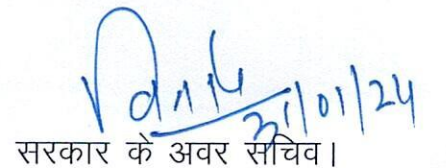 31/01/24
सरकार के अवर सचिव।